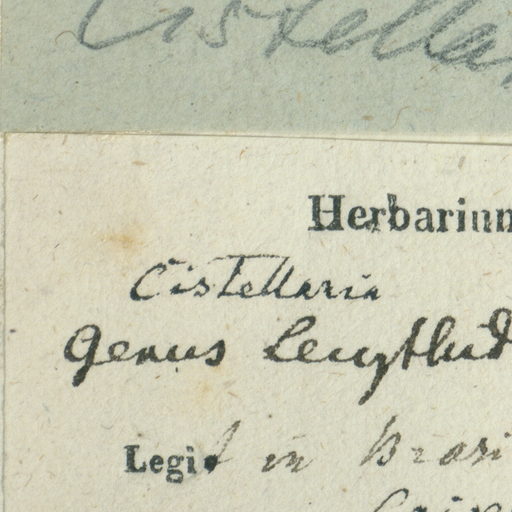 Cistella
Herbarium
Cistellaria
Genus
Legit in Brasi